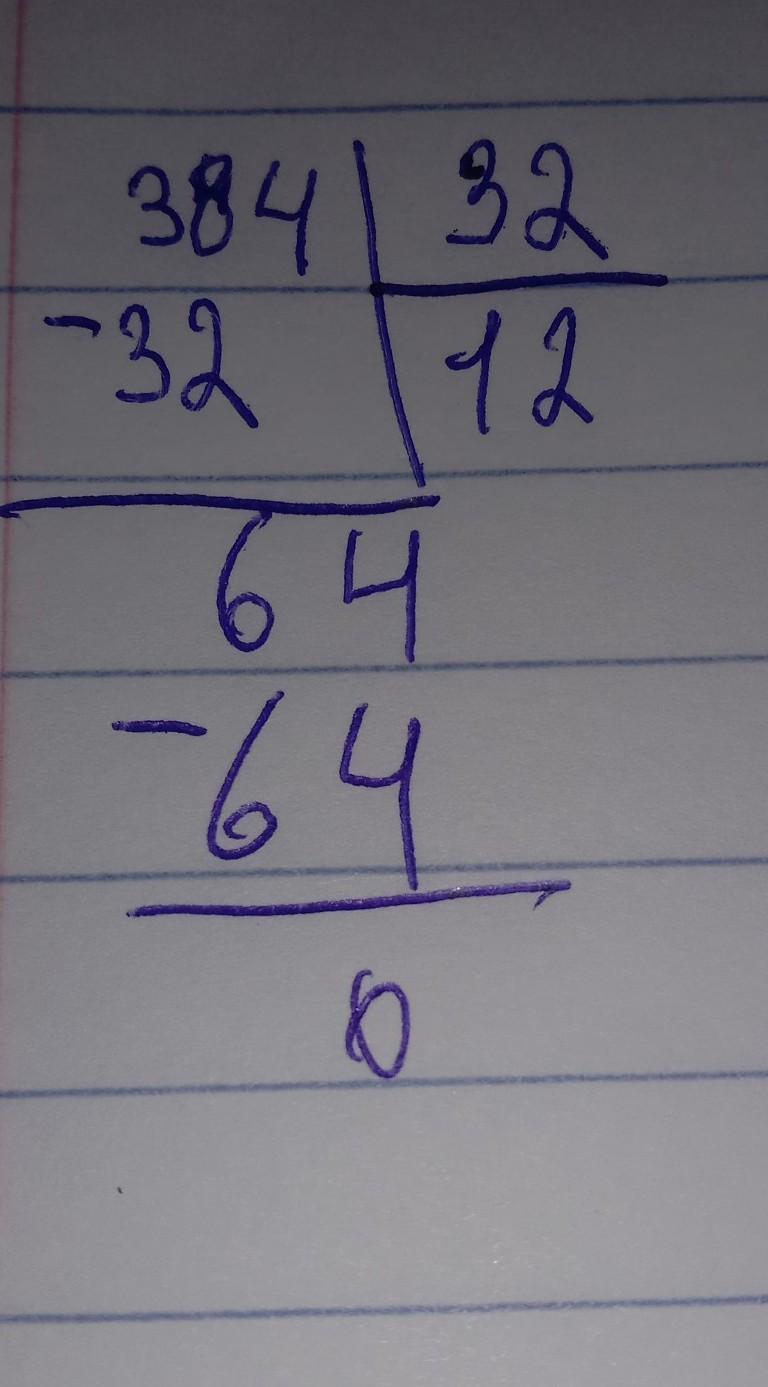 384 32
-32 12
64
-64
0